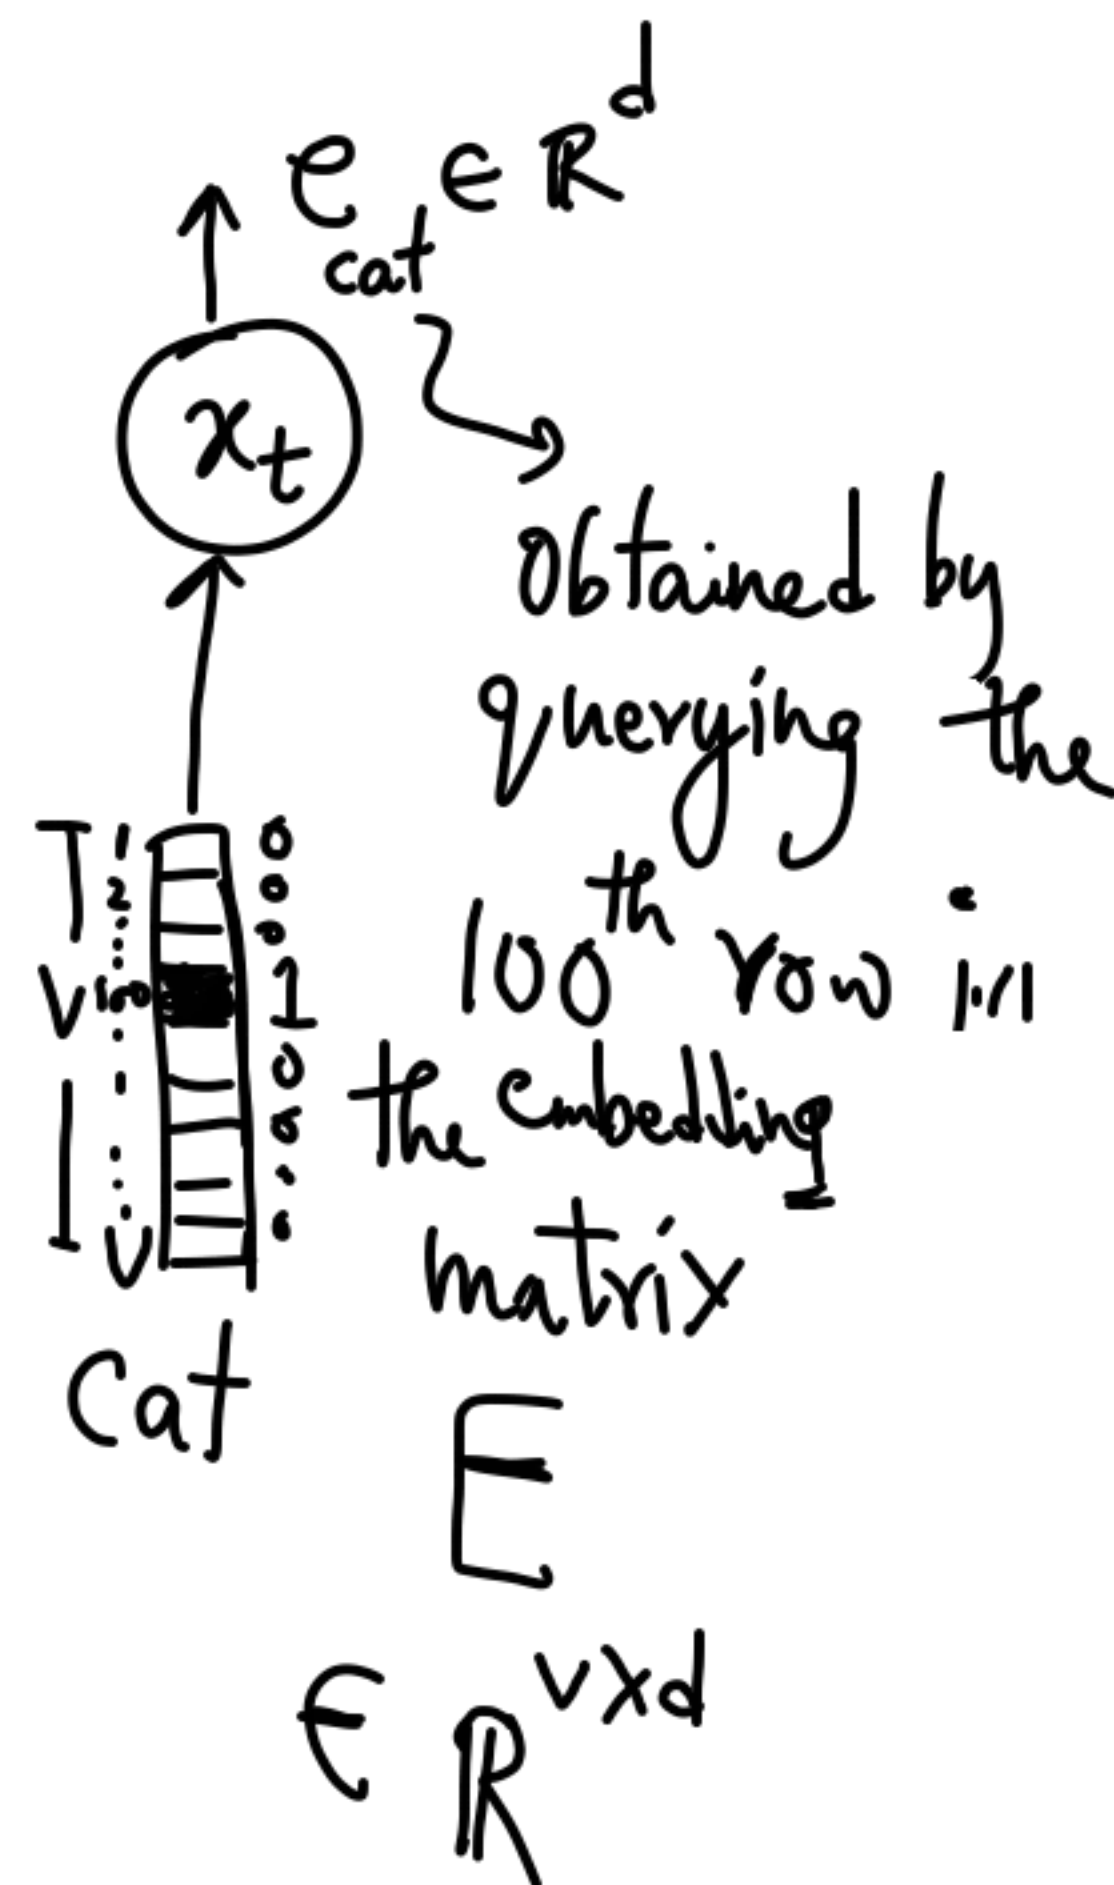 e_cat ∈ ℝ^d
x_t
obtained by
querying the
100th row in
the embedding
matrix
E
∈ ℝ^{V×d}
1 0
2 0
⋮ 0
V 100 1
0
0
V
Cat